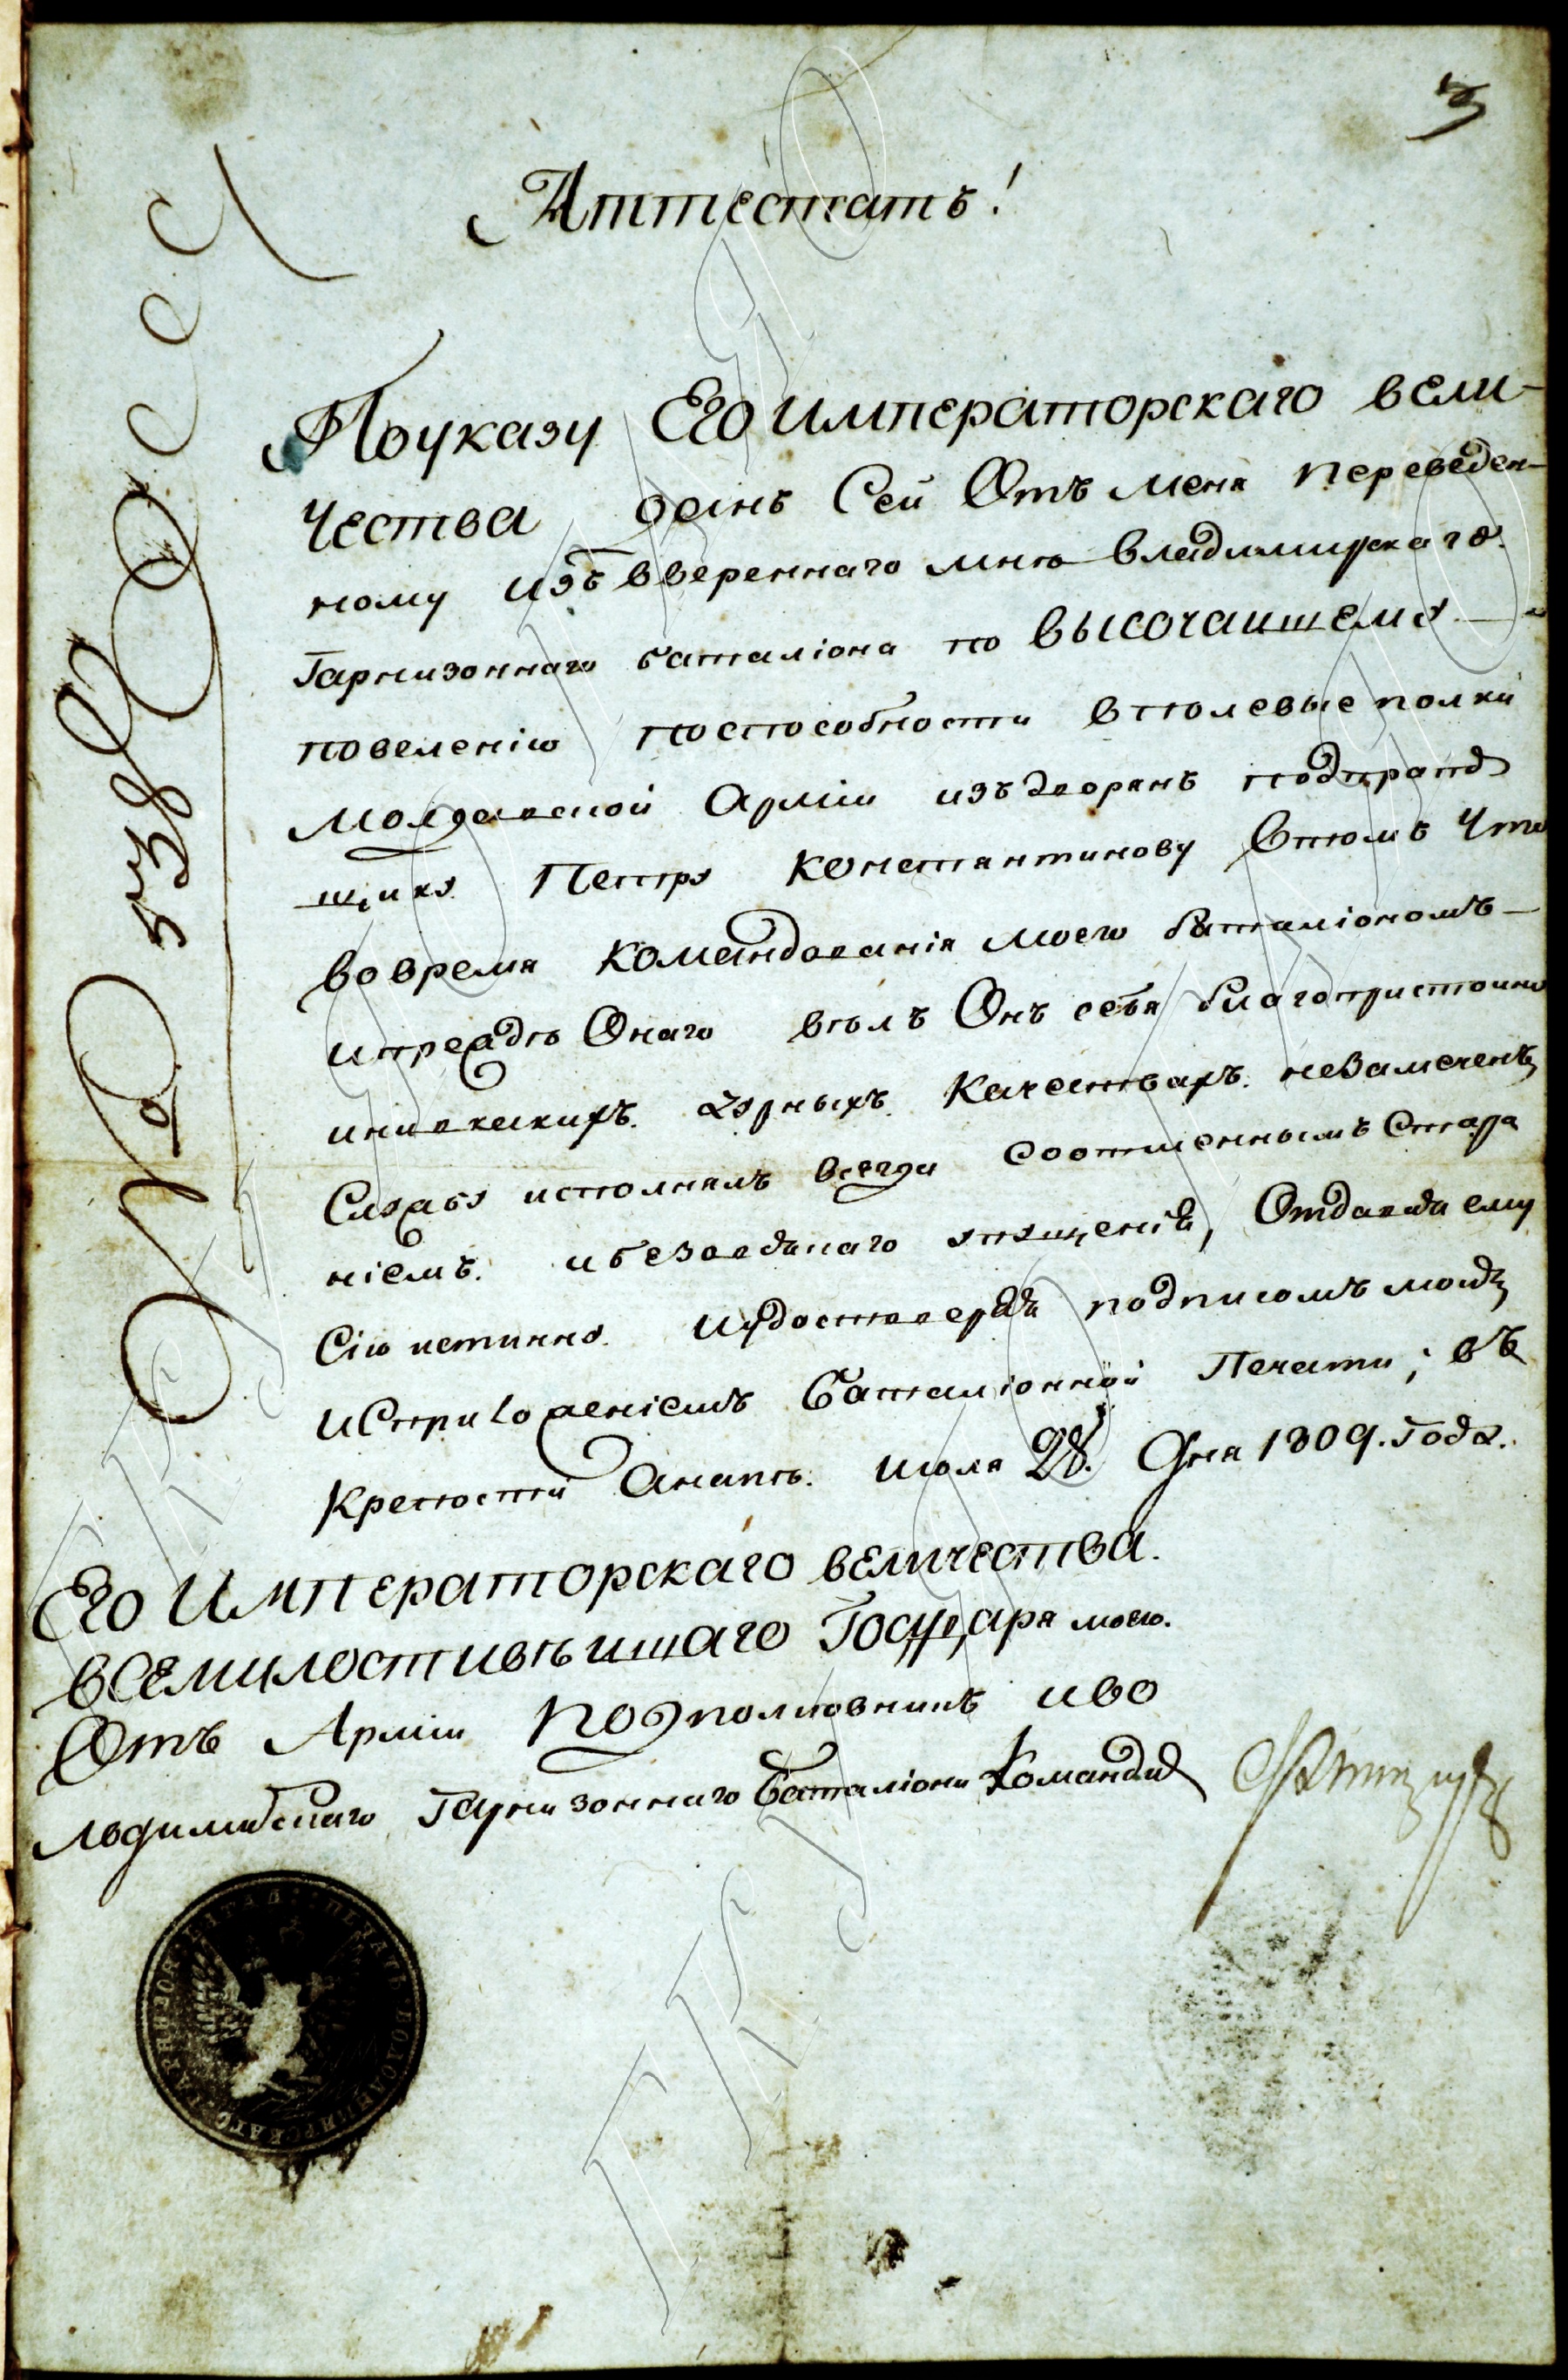 3
Аттестатъ!
По указу Его императорскаго вели-
чества данъ Сей Отъ меня переведен-
ному изъ ввереннаго мнѣ владимирскаго
Гарнизоннаго баталіона по высочаишему
повеленію поспособности в полевые полки
молдавской Арміи изъ дворянъ подпрапо
щику Петру Константинову Втомъ что
вовремя командованія моего баталіономъ
ипрежде Онаго вѣлъ Онъ себя благопристоино
инивкакихъ дурныхъ качествахъ незамеченъ
Службу исполнялъ всегда соотменнымъ Стара
ніемъ ибезъединаго упущенія, Отдавая ему
Сію истинну иудостоверяя подписомъ моимъ
иСприложеніемъ Баталіонной Печати; въ
крепости Анапѣ. июля 28. Дня 1809. Года.
Его Императорскаго величества.
всемилостивѣишаго Государя моего.
Отъ Арміи подполковникъ иво
лодимирскаго Гарнизоннаго баталіона Командиръ
ПЕЧАТЬ ВОЛОДИМИРСКАГО ГАРНИЗОН
№ 538